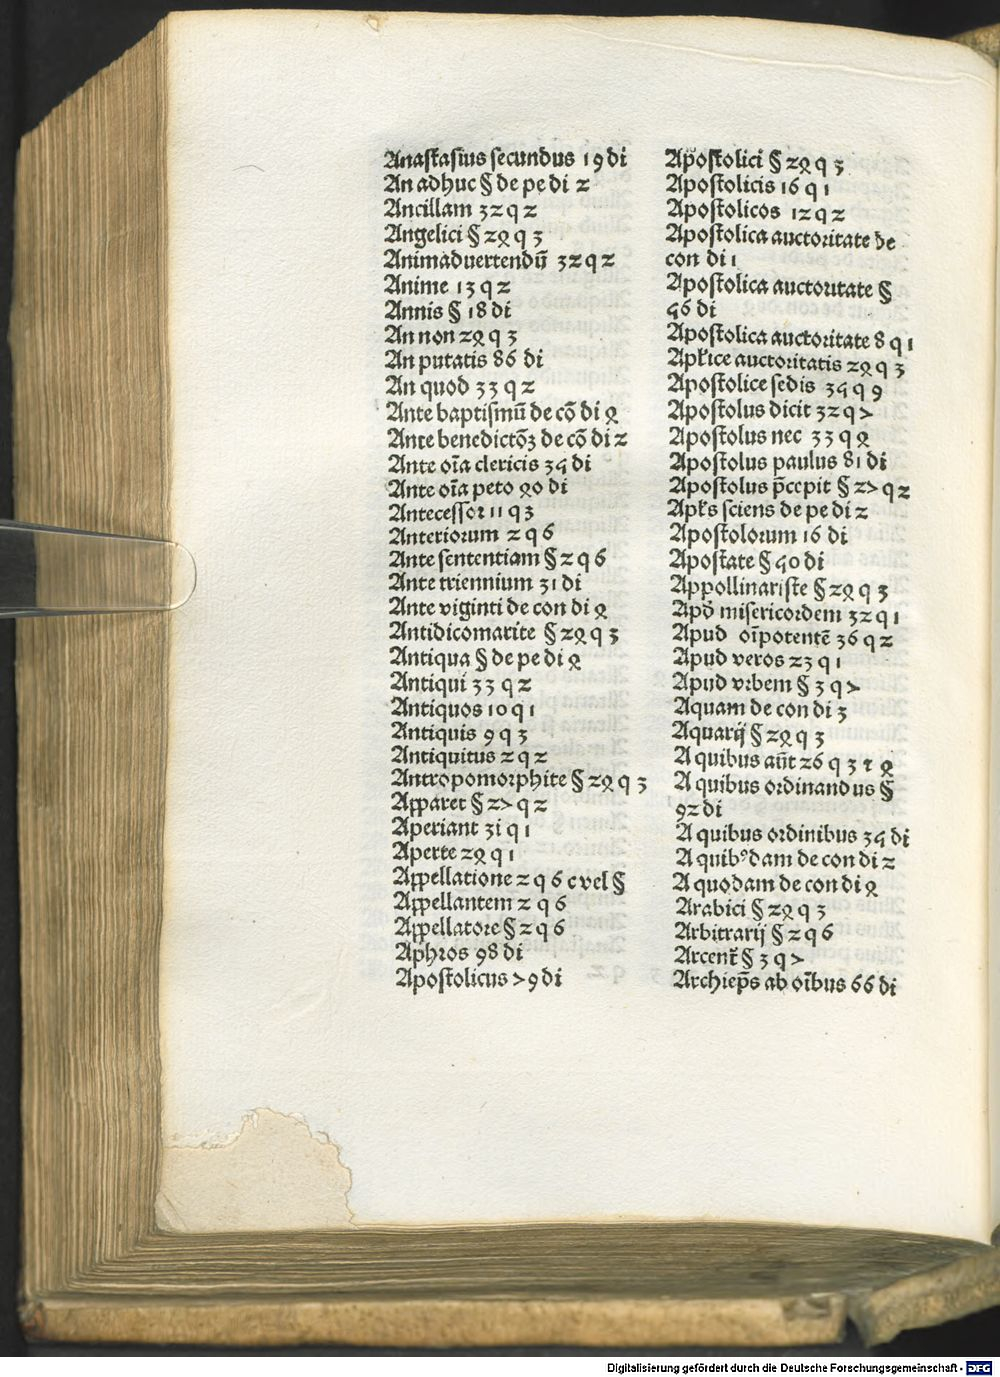 Anastasius secundus 19 di
An adhuc § de pe di 2
Ancillam 32 q 2
Angelici § 24 q 3
Animaduertendũ 32 q 2
Anime 13 q 2
Annis § 18 di
An non 24 q 3
An putatis 86 di
An quod 33 q 2
Ante baptismũ de cõ di 4
Ante benedictõꝫ de cõ di 2
Ante oĩa clericis 35 di
Ante oĩa peto 40 di
Antecessor 11 q 3
Anteriorum 2 q 6
Ante sententiam § 2 q 6
Ante triennium 31 di
Ante viginti de con di 4
Antidicomarite § 24 q 3
Antiqua § de pe di 4
Antiqui 33 q 2
Antiquos 10 q 1
Antiquis 9 q 3
Antiquitus 2 q 2
Antropomorphite § 24 q 3
Apparet § 27 q 2
Aperiant 31 q 1
Aperte 24 q 1
Appellatione 2 q 6 c vel §
Appellantem 2 q 6
Appellatore § 2 q 6
Aphros 98 di
Apostolicus 79 di
Apostolici § 24 q 3
Apostolicis 16 q 1
Apostolicos 12 q 2
Apostolica auctoritate de
con di 1
Apostolica auctoritate §
56 di
Apostolica auctoritate 8 q 1
Apl̃ice auctoritatis 24 q 3
Apostolice sedis 35 q 9
Apostolus dicit 32 q 7
Apostolus nec 33 q 4
Apostolus paulus 81 di
Apostolus p̃cepit § 27 q 2
Apl̃s sciens de pe di 2
Apostolorum 16 di
Apostate § 50 di
Appollinariste § 24 q 3
Apd̃ misericordem 32 q 1
Apud oĩpotentẽ 36 q 2
Apud veros 23 q 1
Apud vrbem § 3 q 7
Aquam de con di 3
Aquarij § 24 q 3
A quibus aũt 26 q 3 ⁊ 4
A quibus ordinandus §
92 di
A quibus ordinibus 35 di
A quibꝰdam de con di 2
A quodam de con di 4
Arabici § 24 q 3
Arbitrarij § 2 q 6
Arcent̃ § 3 q 7
Archiep̃s ab oĩbus 66 di
Digitalisierung gefördert durch die Deutsche Forschungsgemeinschaft - DFG